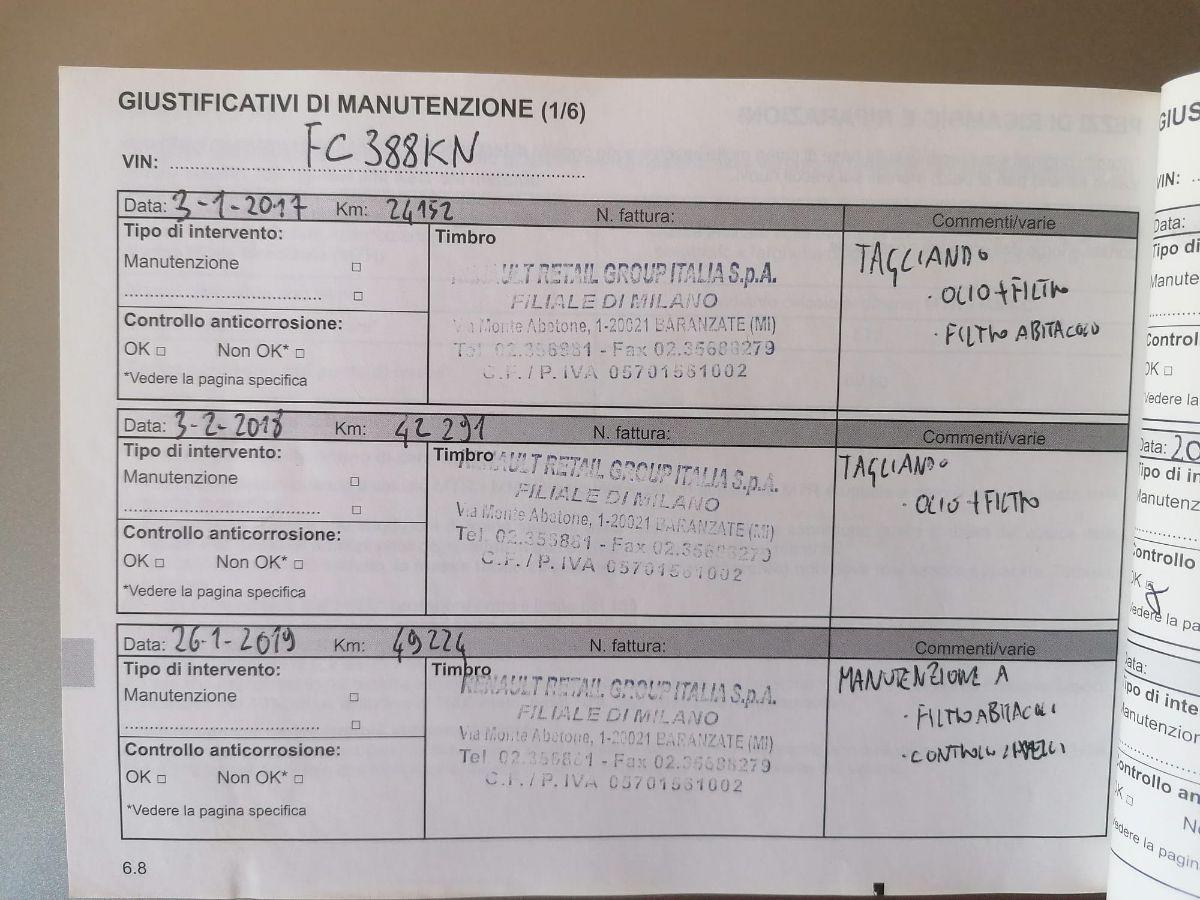 GIUSTIFICATIVI DI MANUTENZIONE (1/6)
VIN: FC388KN
Data: 3-1-2017 Km: 24152 N. fattura: Commenti/varie
Tipo di intervento: Timbro
Manutenzione
Controllo anticorrosione:
OK Non OK*
*Vedere la pagina specifica
RENAULT RETAIL GROUP ITALIA S.p.A.
FILIALE DI MILANO
Via Monte Abetone, 1-20021 BARANZATE (MI)
Tel 02.356981 - Fax 02.35688279
C.F. / P. IVA 05701561002
TAGLIANDO
· OLIO + FILTRO
· FILTRO ABITACOLO
Data: 3-2-2018 Km: 42 291 N. fattura: Commenti/varie
Tipo di intervento: Timbro
Manutenzione
Controllo anticorrosione:
OK Non OK*
*Vedere la pagina specifica
RENAULT RETAIL GROUP ITALIA S.p.A.
FILIALE DI MILANO
Via Monte Abetone, 1-20021 BARANZATE (MI)
Tel. - Fax
C.F. / P. IVA 05701561002
TAGLIANDO
· OLIO + FILTRO
Data: 26-1-2019 Km: 49224 N. fattura: Commenti/varie
Tipo di intervento: Timbro
Manutenzione
Controllo anticorrosione:
OK Non OK*
*Vedere la pagina specifica
RENAULT RETAIL GROUP ITALIA S.p.A.
FILIALE DI MILANO
Via Monte Abetone, 1-20021 BARANZATE (MI)
Tel - Fax
C.F. / P. IVA 05701561002
MANUTENZIONE A
· FILTRO ABITACOLI
· CONTROLLI
6.8
GIUS
VIN:
Data:
Tipo di
Manuten
Control
OK
Vedere la
Data: 20
Tipo di in
Manutenz
Controllo
OK
Vedere la pa
Data:
Tipo di inte
Manutenzion
Controllo an
OK
Vedere la pagin